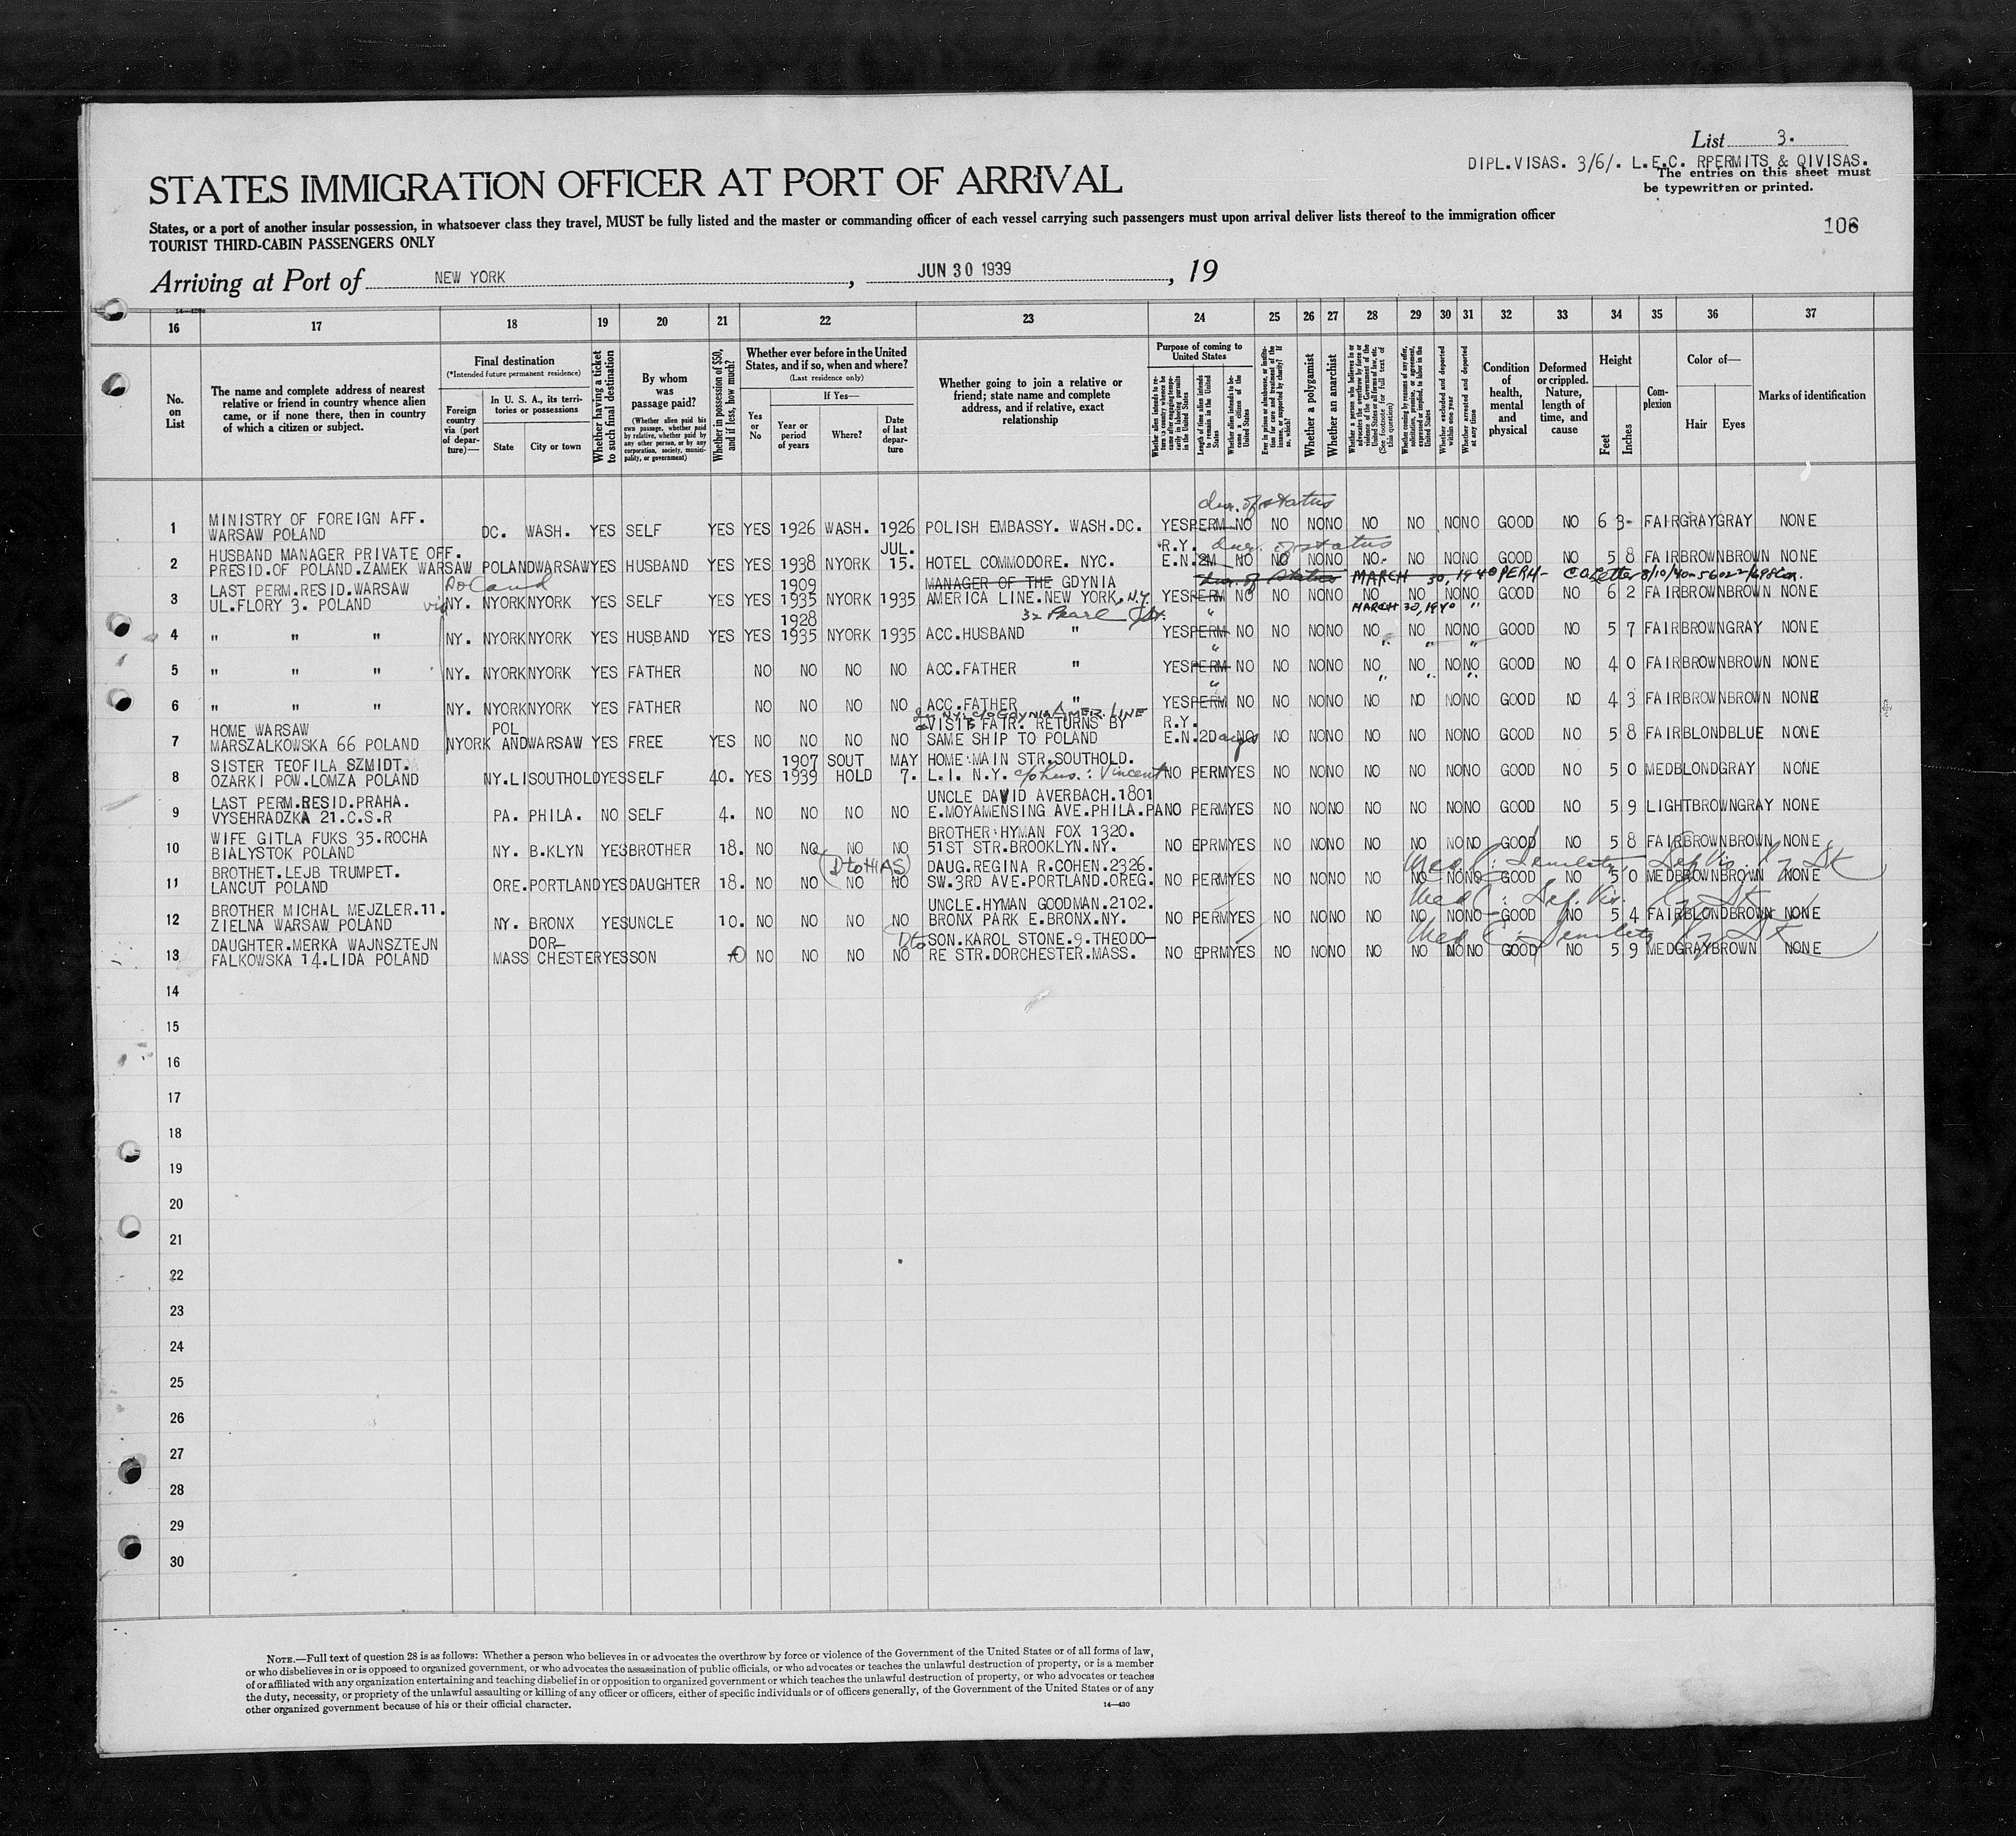 List 3.
DIPL.VISAS. 3/6/. L.E.C. RPERMITS & QIVISAS.
The entries on this sheet must
be typewritten or printed.
STATES IMMIGRATION OFFICER AT PORT OF ARRIVAL
States, or a port of another insular possession, in whatsoever class they travel, MUST be fully listed and the master or commanding officer of each vessel carrying such passengers must upon arrival deliver lists thereof to the immigration officer
106
TOURIST THIRD-CABIN PASSENGERS ONLY
Arriving at Port of NEW YORK, JUN 30 1939, 19
16 17 18 19 20 21 22 23 24 25 26 27 28 29 30 31 32 33 34 35 36 37
No. on List
The name and complete address of nearest relative or friend in country whence alien came, or if none there, then in country of which a citizen or subject.
Final destination
(*Intended future permanent residence)
Foreign country via (port of departure)—
In U. S. A., its territories or possessions
State City or town
Whether having a ticket to such final destination
By whom was passage paid?
(Whether alien paid his own passage, whether paid by relative, whether paid by any other person, or by any corporation, society, municipality, or government)
Whether in possession of $50, and if less, how much?
Whether ever before in the United States, and if so, when and where?
(Last residence only)
Yes or No
If Yes—
Year or period of years Where? Date of last departure
Whether going to join a relative or friend; state name and complete address, and if relative, exact relationship
Purpose of coming to United States
Whether alien intends to return to country whence he came after engaging temporarily in laboring pursuits in the United States
Length of time alien intends to remain in the United States
Whether alien intends to become a citizen of the United States
Ever in prison or almshouse, or institution for care and treatment of the insane, or supported by charity? If so, which?
Whether a polygamist
Whether an anarchist
Whether excluded and deported within one year
Whether arrested and deported at any time
Condition of health, mental and physical
Deformed or crippled. Nature, length of time, and cause
Height
Feet Inches
Complexion
Color of—
Hair Eyes
Marks of identification
dur. of status
1 MINISTRY OF FOREIGN AFF. WARSAW POLAND DC. WASH. YES SELF YES YES 1926 WASH. 1926 POLISH EMBASSY. WASH.DC. YES PERM NO NO NO NO NO NO NO NO GOOD NO 6 3- FAIR GRAY GRAY NONE
dur. of status
2 HUSBAND MANAGER PRIVATE OFF. PRESID.OF POLAND.ZAMEK WARSAW POLAND WARSAW YES HUSBAND YES YES 1938 NYORK JUL. 15. HOTEL COMMODORE. NYC. R.Y. E.N. 2M NO NO NO NO NO NO NO NO GOOD NO 5 8 FAIR BROWN BROWN NONE
Poland
dur. of status MARCH 30, 1940 PERM- CO letter 8/10/40-
3 LAST PERM.RESID.WARSAW UL.FLORY 3. POLAND via NY. NYORK NYORK YES SELF YES YES 1909 1935 NYORK 1935 MANAGER OF THE GDYNIA AMERICA LINE.NEW YORK, N.Y. YES PERM NO NO NO NO NO NO NO NO GOOD NO 6 2 FAIR BROWN BROWN NONE
32 Pearl Str.
" MARCH 30, 1940 "
4 " " " NY. NYORK NYORK YES HUSBAND YES YES 1928 1935 NYORK 1935 ACC.HUSBAND " YES PERM NO NO NO NO NO NO NO NO GOOD NO 5 7 FAIR BROWN GRAY NONE
" " " "
5 " " " NY. NYORK NYORK YES FATHER NO NO NO NO ACC.FATHER " YES PERM NO NO NO NO NO NO NO NO GOOD NO 4 0 FAIR BROWN BROWN NONE
" " " "
6 " " " NY. NYORK NYORK YES FATHER NO NO NO NO ACC.FATHER " YES PERM NO NO NO NO NO NO NO NO GOOD NO 4 3 FAIR BROWN BROWN NONE
in NY. c/o GDYNIA AMER. LINE
7 HOME WARSAW MARSZALKOWSKA 66 POLAND NYORK POL AND WARSAW YES FREE YES NO NO NO NO VISITS FAIR. RETURNS BY SAME SHIP TO POLAND R.Y. E.N. 2Days NO NO NO NO NO NO NO NO GOOD NO 5 8 FAIR BLOND BLUE NONE
8 SISTER TEOFILA SZMIDT. OZARKI POW.LOMZA POLAND NY.LI SOUTHOLD YES SELF 40. YES 1907 1939 SOUT HOLD MAY 7. HOME MAIN STR.SOUTHOLD. L.I. N.Y. c/o hus.: Vincent NO PERM YES NO NO NO NO NO NO NO GOOD NO 5 0 MED BLOND GRAY NONE
9 LAST PERM.RESID.PRAHA. VYSEHRADZKA 21.C.S.R PA. PHILA. NO SELF 4. NO NO NO NO UNCLE DAVID AVERBACH.1801 E.MOYAMENSING AVE.PHILA.PA NO PERM YES NO NO NO NO NO NO NO GOOD NO 5 9 LIGHT BROWN GRAY NONE
10 WIFE GITLA FUKS 35.ROCHA BIALYSTOK POLAND NY. B.KLYN YES BROTHER 18. NO NO NO NO BROTHER HYMAN FOX 1320. 51ST STR.BROOKLYN.NY. NO EPRM YES NO NO NO NO NO NO NO GOOD NO 5 8 FAIR BROWN BROWN NONE
(D to HIAS) Med C: Senility Def Vis.
11 BROTHET.LEJB TRUMPET. LANCUT POLAND ORE. PORTLAND YES DAUGHTER 18. NO NO NO NO DAUG.REGINA R.COHEN.2326. SW.3RD AVE.PORTLAND.OREG. NO PERM YES NO NO NO NO NO NO NO GOOD NO 5 0 MED BROWN BROWN NONE
Med C: Def. Vis.
12 BROTHER MICHAL MEJZLER.11. ZIELNA WARSAW POLAND NY. BRONX YES UNCLE 10. NO NO NO NO UNCLE.HYMAN GOODMAN.2102. BRONX PARK E.BRONX.NY. NO PERM YES NO NO NO NO NO NO NO GOOD NO 5 4 FAIR BLOND BROWN NONE
D to Med C: Senility
13 DAUGHTER.MERKA WAJNSZTEJN FALKOWSKA 14.LIDA POLAND MASS DOR- CHESTER YES SON NO NO NO NO SON.KAROL STONE.9.THEODO- RE STR.DORCHESTER.MASS. NO EPRM YES NO NO NO NO NO NO NO GOOD NO 5 9 MED GRAY BROWN NONE
14
15
16
17
18
19
20
21
22
23
24
25
26
27
28
29
30
NOTE.—Full text of question 28 is as follows: Whether a person who believes in or advocates the overthrow by force or violence of the Government of the United States or of all forms of law,
or who disbelieves in or is opposed to organized government, or who advocates the assassination of public officials, or who advocates or teaches the unlawful destruction of property, or is a member
of or affiliated with any organization entertaining and teaching disbelief in or opposition to organized government or which teaches the unlawful destruction of property, or who advocates or teaches
the duty, necessity, or propriety of the unlawful assaulting or killing of any officer or officers, either of specific individuals or of officers generally, of the Government of the United States or of any
other organized government because of his or their official character.
14—430